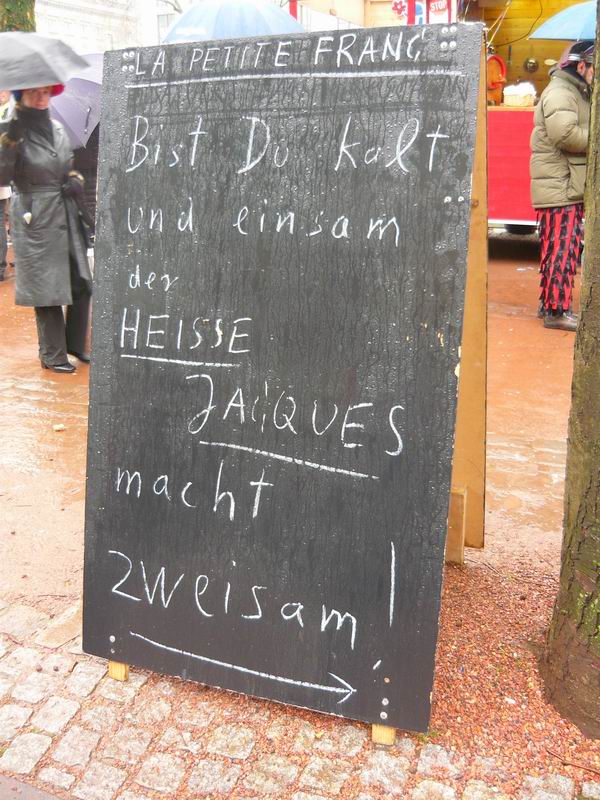 LA PETITE FRANC'
Bist Du kalt
und einsam
der
HEISSE
JACQUES
macht
zweisam!
STOP